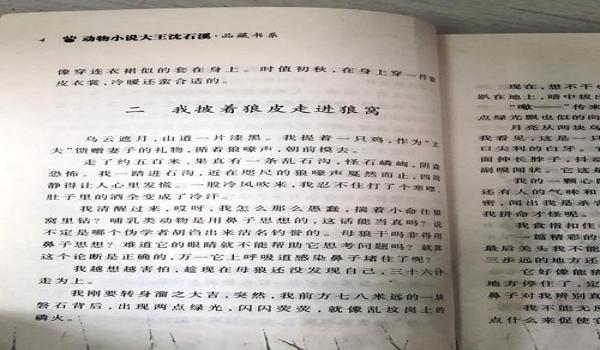 4 动物小说大王沈石溪·品藏书系
像穿连衣裙似的套在身上。时值初秋，在身上穿一件狼
皮衣裳，冷暖还蛮合适的。
二 我披着狼皮走进狼窝
乌云遮月，山道一片漆黑。我提着一只鸡，作为“丈
夫”馈赠妻子的礼物，循着狼嚎声，朝前摸去。
走了约五百米，果真有一条乱石沟，怪石嶙峋，阴森
恐怖。我一踏进石沟，近在咫尺的狼嚎声戛然而止，四周
静得让人心里发慌。一股冷风吹来，我忍不住打了个寒噤，
肚子里的酒全变成了冷汗。
我清醒过来，哎呀，我怎么那么愚蠢，揣着小命往狼
窝里钻？哺乳类动物是用鼻子思想的，这话能当真吗？说
不定是哪个伪学者胡诌出来沽名钓誉的。母狼干吗非得用
鼻子思想？难道它的眼睛就不能帮助它思考问题吗？就算
这个论断是正确的，万一它上呼吸道感染鼻子堵住了呢？
我越想越害怕，趁现在母狼还没发现自己，三十六计
走为上。
我刚要转身溜之大吉，突然，我前方七八米远的一块
磐石背后，出现两点绿光，闪闪荧荧，就像乱坟岗上的
磷火。
现在，想不干也
趴在地上，暗中拔出
“呦——”传来
点绿光飘也似的向
月亮从两块乌
我看见，这是一只
口尖利的白牙。它
面伸长脖子，抖动
副嗅闻状。它这是
我的一颗心
还有人的气味和
密，闻出我是杀害
我拼命才怪呢。
我食指扣住
一篇精彩的
最后关头我不能
三步远的地方还
它好像能猜
地方停住了，定
鼻子对我辨别真
我不能无所
点什么来促使它